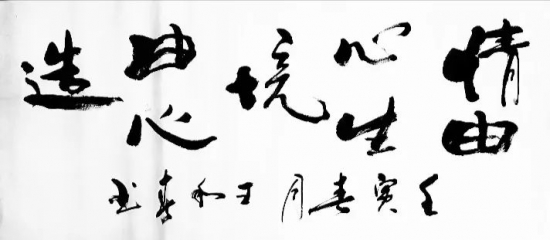 情由心生境由心造
壬寅春月王和书